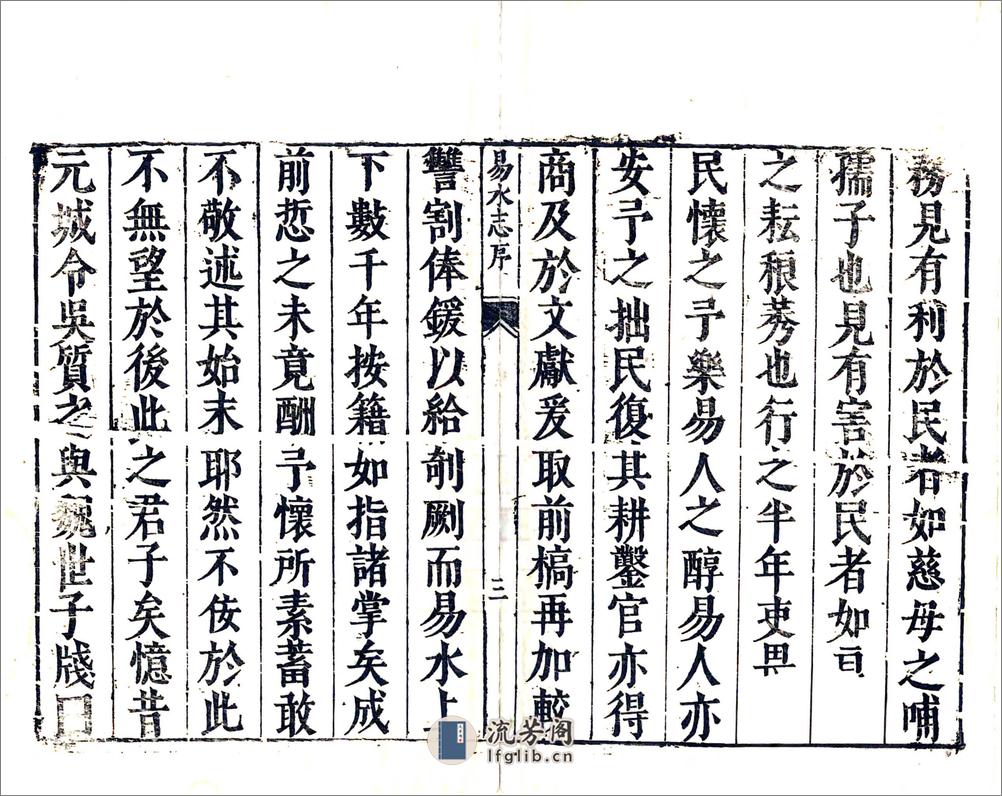 務見有利於民者如慈母之哺
孺子也見有害於民者如
之耘稂莠也行之半年吏畏
民懷之予樂易人之醇易人亦
安予之拙民復其耕鑿官亦得
商及於文獻爰取前槁再加較
易水志序
三
讐割俸鍰以給剞劂而易水上
下數千年按籍如指諸掌矣成
前悊之未竟酬予懷所素蓄敢
不敬述其始末耶然不佞於此
不無望於後此之君子矣憶昔
元城令吳質之與魏世子牋曰
流芳阁
lfglib.cn